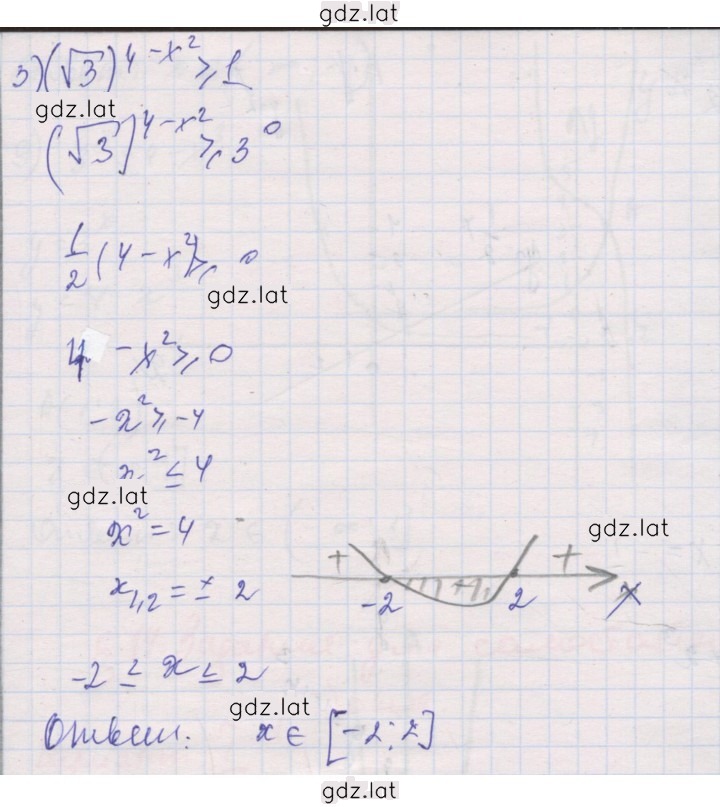 gdz.lat
3) (√3)^{4-x²} ≥ 1
gdz.lat
(√3)^{4-x²} ≥ 3⁰
1/2 (4 - x²) ≥ 0
gdz.lat
4 - x² ≥ 0
-x² ≥ -4
x² ≤ 4
gdz.lat
x² = 4
gdz.lat
+ +
x₁,₂ = ± 2
-2 2 x
-2 ≤ x ≤ 2
gdz.lat
Ответ: x ∈ [-2; 2]
gdz.lat